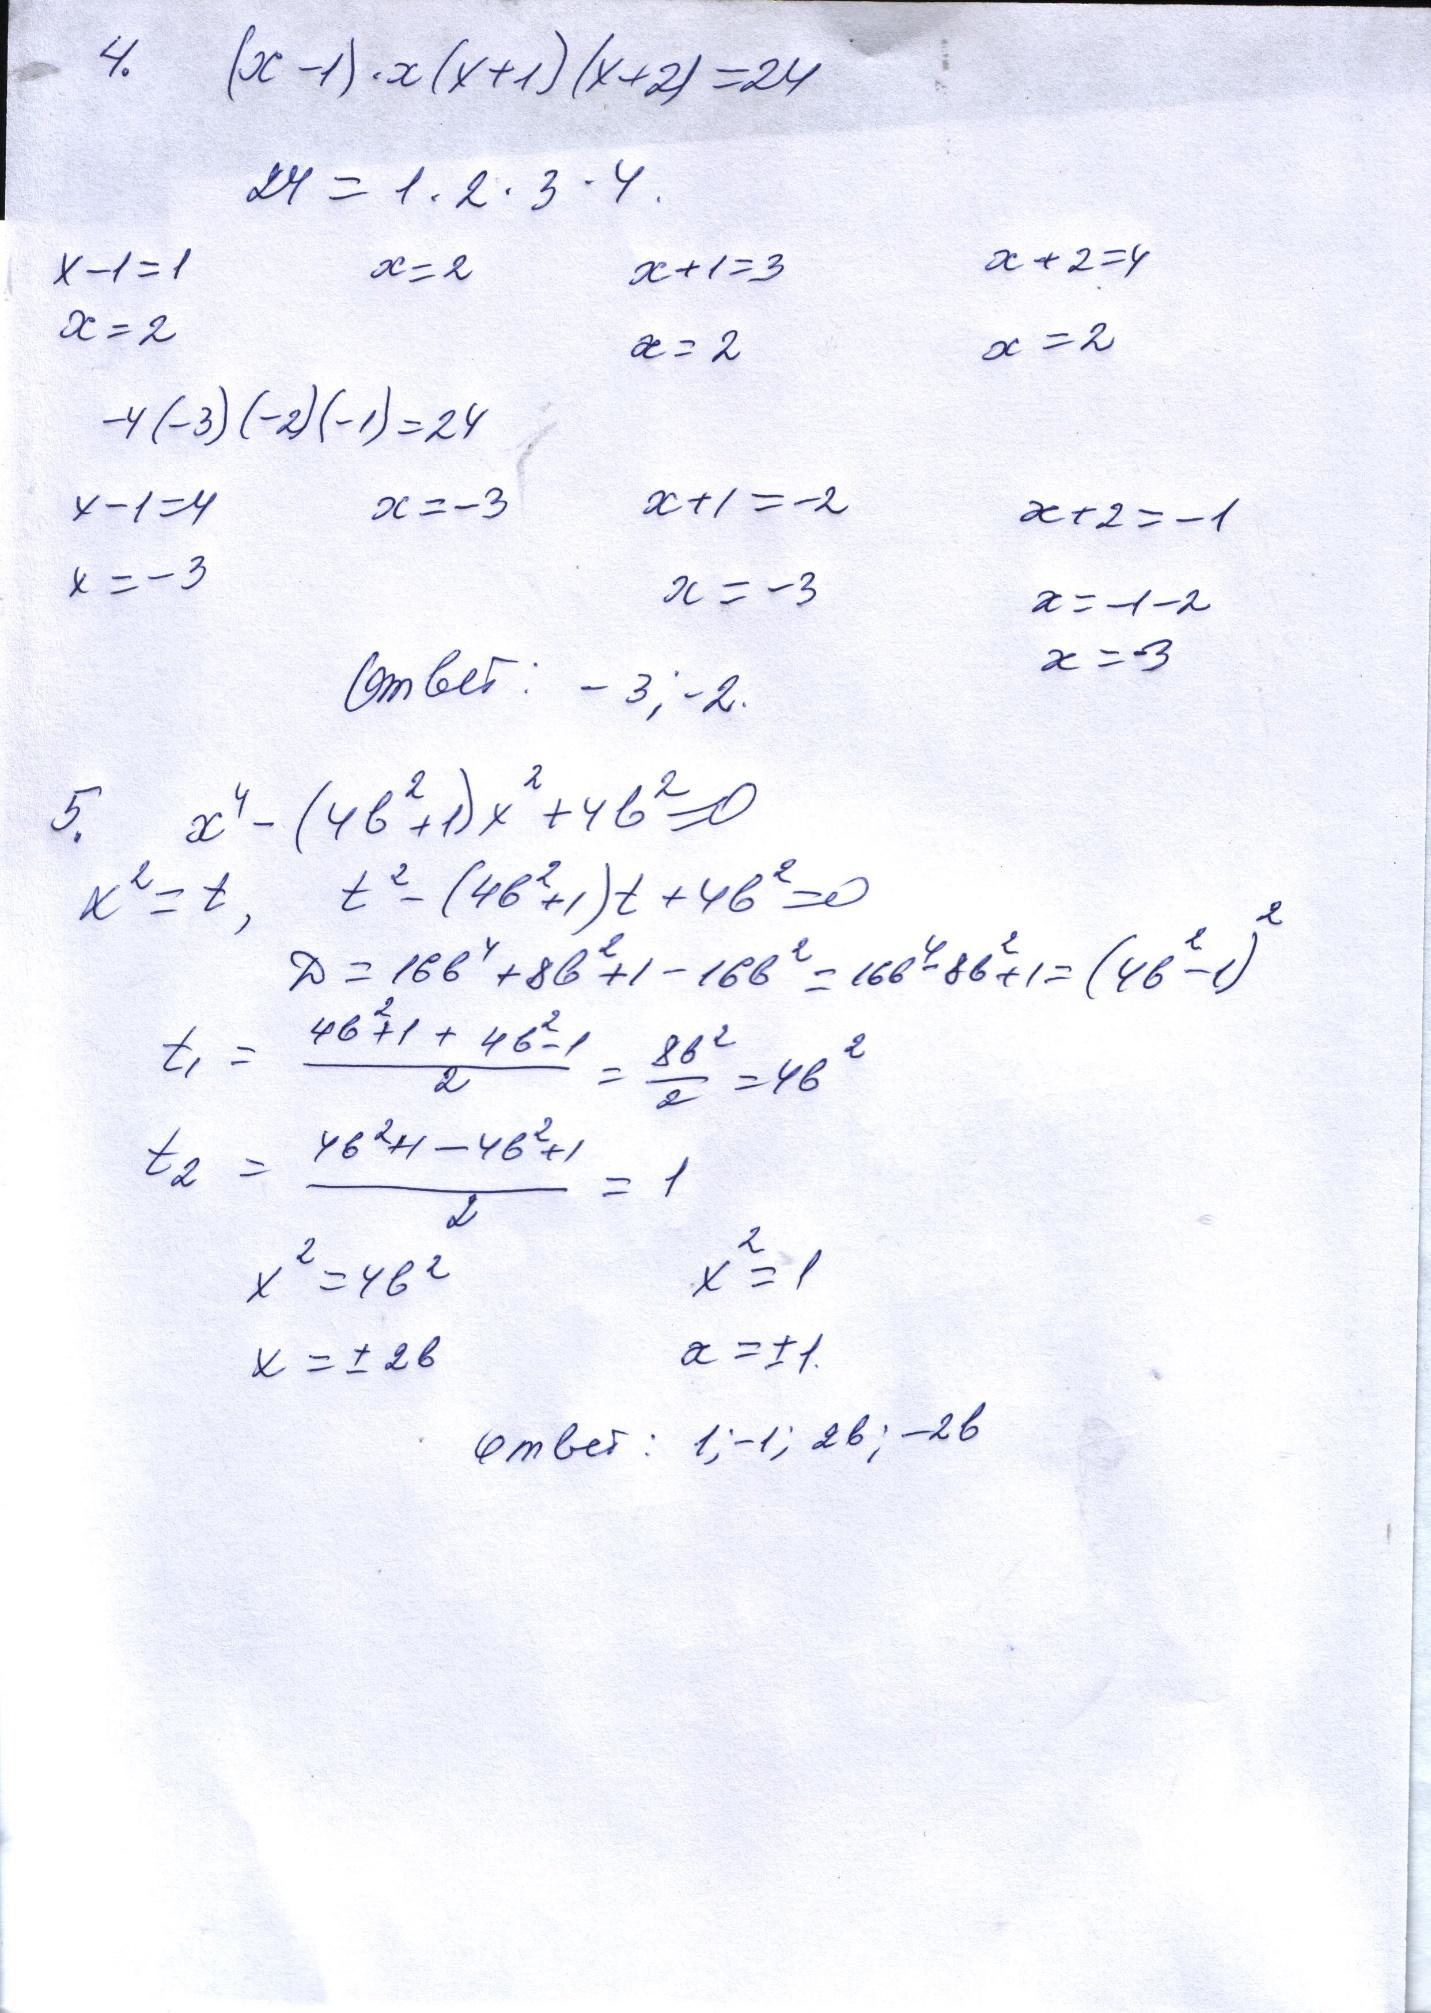 4. (x-1)·x(x+1)(x+2)=24
24 = 1·2·3·4.
x-1=1 x=2 x+1=3 x+2=4
x=2 x=2 x=2
-4(-3)(-2)(-1)=24
x-1=4 x=-3 x+1=-2 x+2=-1
x=-3 x=-3 x=-1-2
x=-3
Ответ: -3; -2.
5. x⁴-(4b²+1)x²+4b²=0
x²=t, t²-(4b²+1)t+4b²=0
D=16b⁴+8b²+1-16b²=16b⁴-8b²+1=(4b²-1)²
t₁ = (4b²+1+4b²-1)/2 = 8b²/2 = 4b²
t₂ = (4b²+1-4b²+1)/2 = 1
x²=4b² x²=1
x=±2b x=±1.
Ответ: 1; -1; 2b; -2b